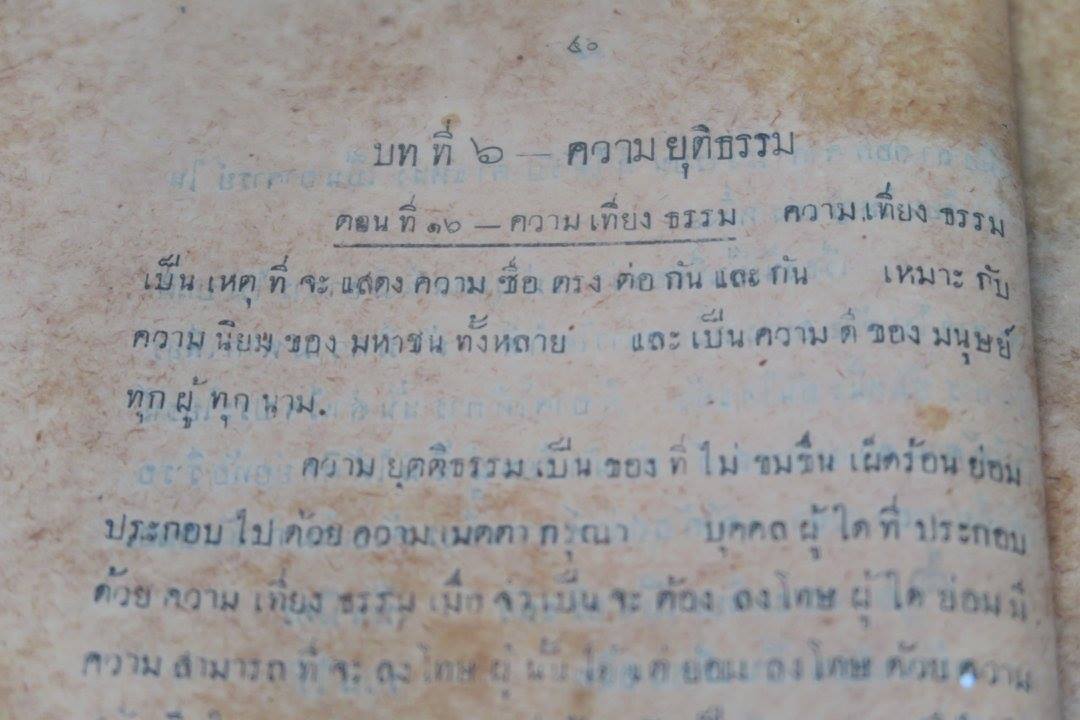 ๔๐
บทที่ ๖ — ความยุติธรรม
ตอนที่ ๑๖ — ความเที่ยงธรรม ความเที่ยงธรรม
เป็นเหตุที่จะแสดงความซื่อตรงต่อกันและกัน เหมาะกับ
ความนิยมของมหาชนทั้งหลาย และเป็นความดีของมนุษย์
ทุกผู้ทุกนาม.
ความยุตติธรรมเป็นของที่ไม่ขมขื่นเผ็ดร้อนย่อม
ประกอบไปด้วยความเมตตากรุณา บุคคลผู้ใดที่ประกอบ
ด้วยความเที่ยงธรรม เมื่อจำเป็นจะต้องลงโทษผู้ใดย่อมมี
ความสามารถที่จะลงโทษผู้นั้นได้แต่ย่อมลงโทษด้วยความ